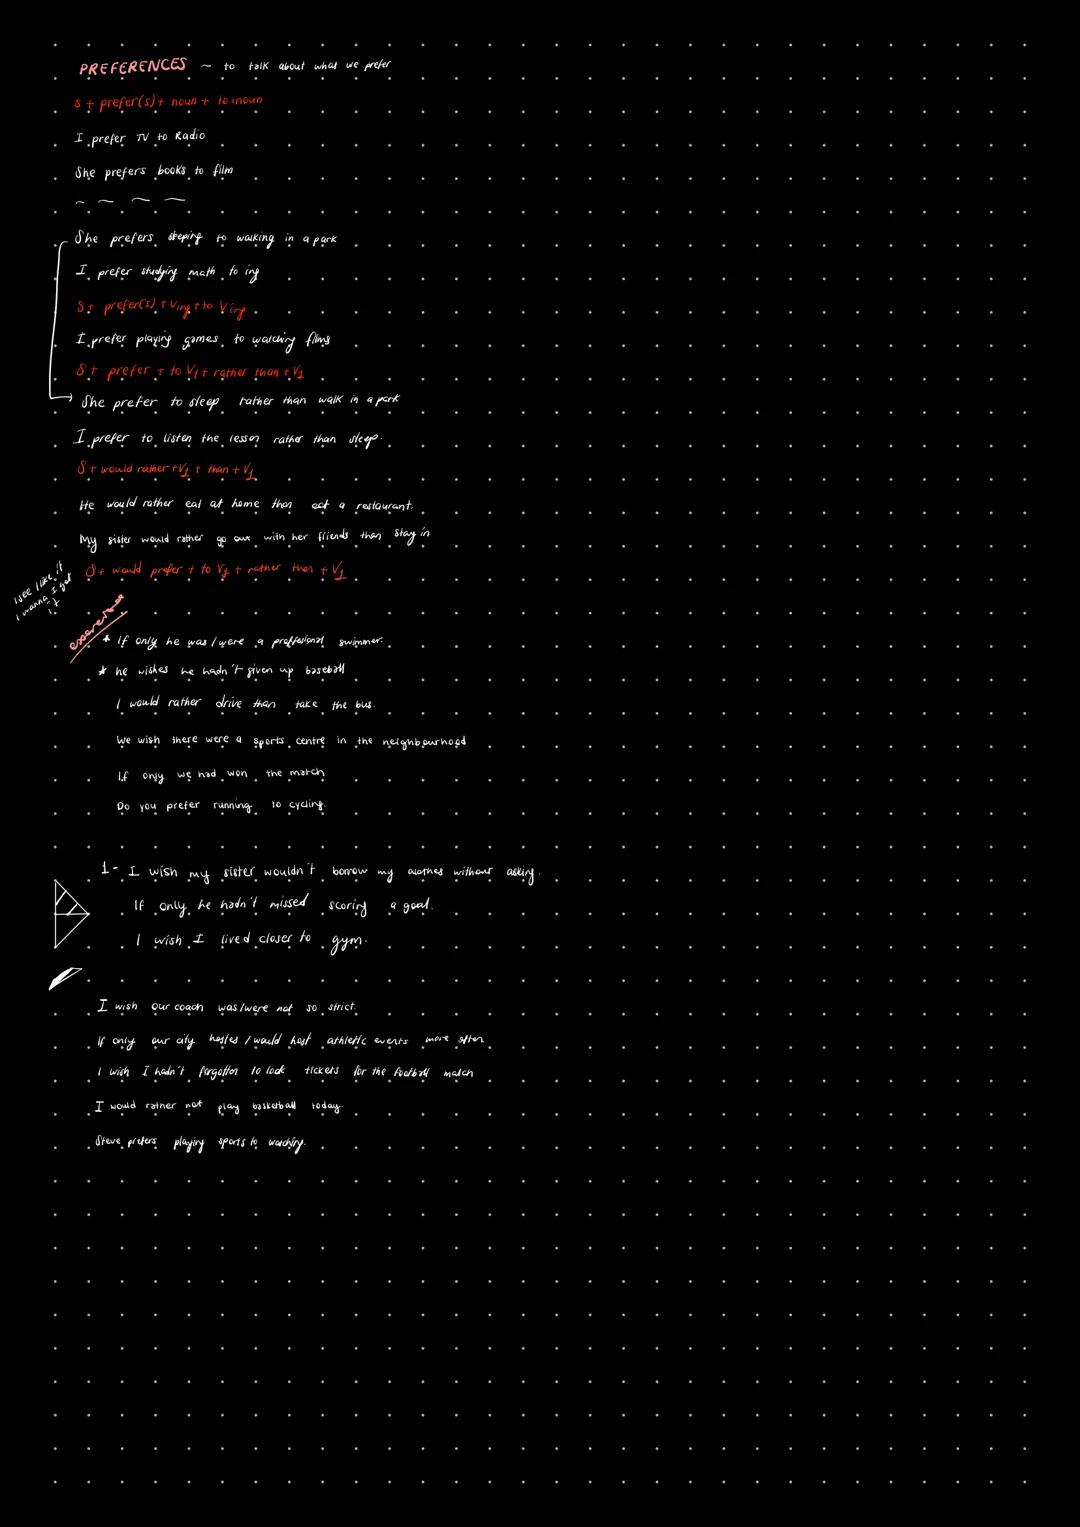 PREFERENCES ~ to talk about what we prefer
S + prefer(s) + noun + to + noun
I prefer TV to Radio
She prefers books to film
She prefers sleeping to walking in a park
I prefer studying math to ing
S + prefer(s) + Ving + to Ving
I prefer playing games to watching films
S + prefer + to V1 + rather than + V1
She prefer to sleep rather than walk in a park
I prefer to listen the lesson rather than sleep.
S + would rather + V1 + than + V1
He would rather eat at home than eat a restaurant.
My sister would rather go out with her friends than stay in
S + would prefer + to V1 + rather than + V1
I see I like it
I wanna I got
it
* If only he was/were a proffesional swimmer.
* he wishes he hadn't given up baseball
I would rather drive than take the bus.
We wish there were a sports centre in the neighbourhood
If only we had won the match
Do you prefer running to cycling.
1- I wish my sister wouldn't borrow my clothes without asking.
If only he hadn't missed scoring a goal.
I wish I lived closer to gym.
I wish our coach was/were not so strict.
If only our city hostes / would host athletic events more often
I wish I hadn't forgotton to book tickets for the football match
I would rather not play basketball today.
Steve prefers playing sports to watching.